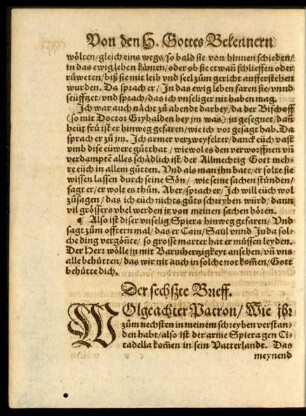 Von den H. Gottes Bekennern
wölten/ gleich eins wegs/ so bald sie von hinnen schieden/
in das ewig leben kämen/ oder ob sie etwan schlieffen oder
rüweten/ biß sie mit leib vnd seel zum gericht aufferstehen
wurden. Da sprach er/ In das ewig leben faren sie/ vnnd
seüfftzet/ vnd sprach/ das ich vnseliger nit haben mag.
Ich wölt aber nicht zů abendt darbey/ da der Bischoff
(so mit Doctor Gryhalden bey jm was) jn gesegnet/ dañ
heüt frü ist er hinweg gefaren/ wie ich vor gesagt hab. Da
sprach er zů jm. Ich armer verzweyfleter/ danck eüch vast
vmb dise eüwere gütthat/ wiewol es den verworffnen vñ
verdampte alles schädlich ist/ der Allmechtig Gott mehre
eüch in allem gůtten. Vnd als man jhn bate/ er solte sie
wissen lassen durch seine Sön/ wie seine sachen stünden/
sagt er/ er wolt es thůn. Aber/ sprach er/ Ich will eüch wol
zůsagen/ das ich eüch nichts gůts schreyben würd/ dann
vil grössers vbel werden jr von meinen sachen hören.
¶ Also ist diser vnselig Spiera hinweg gefaren/ Vnd
sagt zum offtern mal/ das er Cain/ Saul vnnd Juda solche
ding vergönte/ so grosse marter hat er müssen leyden.
Der Herr wölle jn mit Barmhertzigkeyt ansehen/ vñ vns
alle behütten/ das wir nit auch in solche not komen/ Gott
behütte dich.
Der sechßte Brieff.
WOlgeachter Patron/ Wie jhr
zům nechsten in meinem schreyben verstanden
habt/ also ist der arme Spiera gen Citadella
komen in sein Vatterlande. Das
meynend